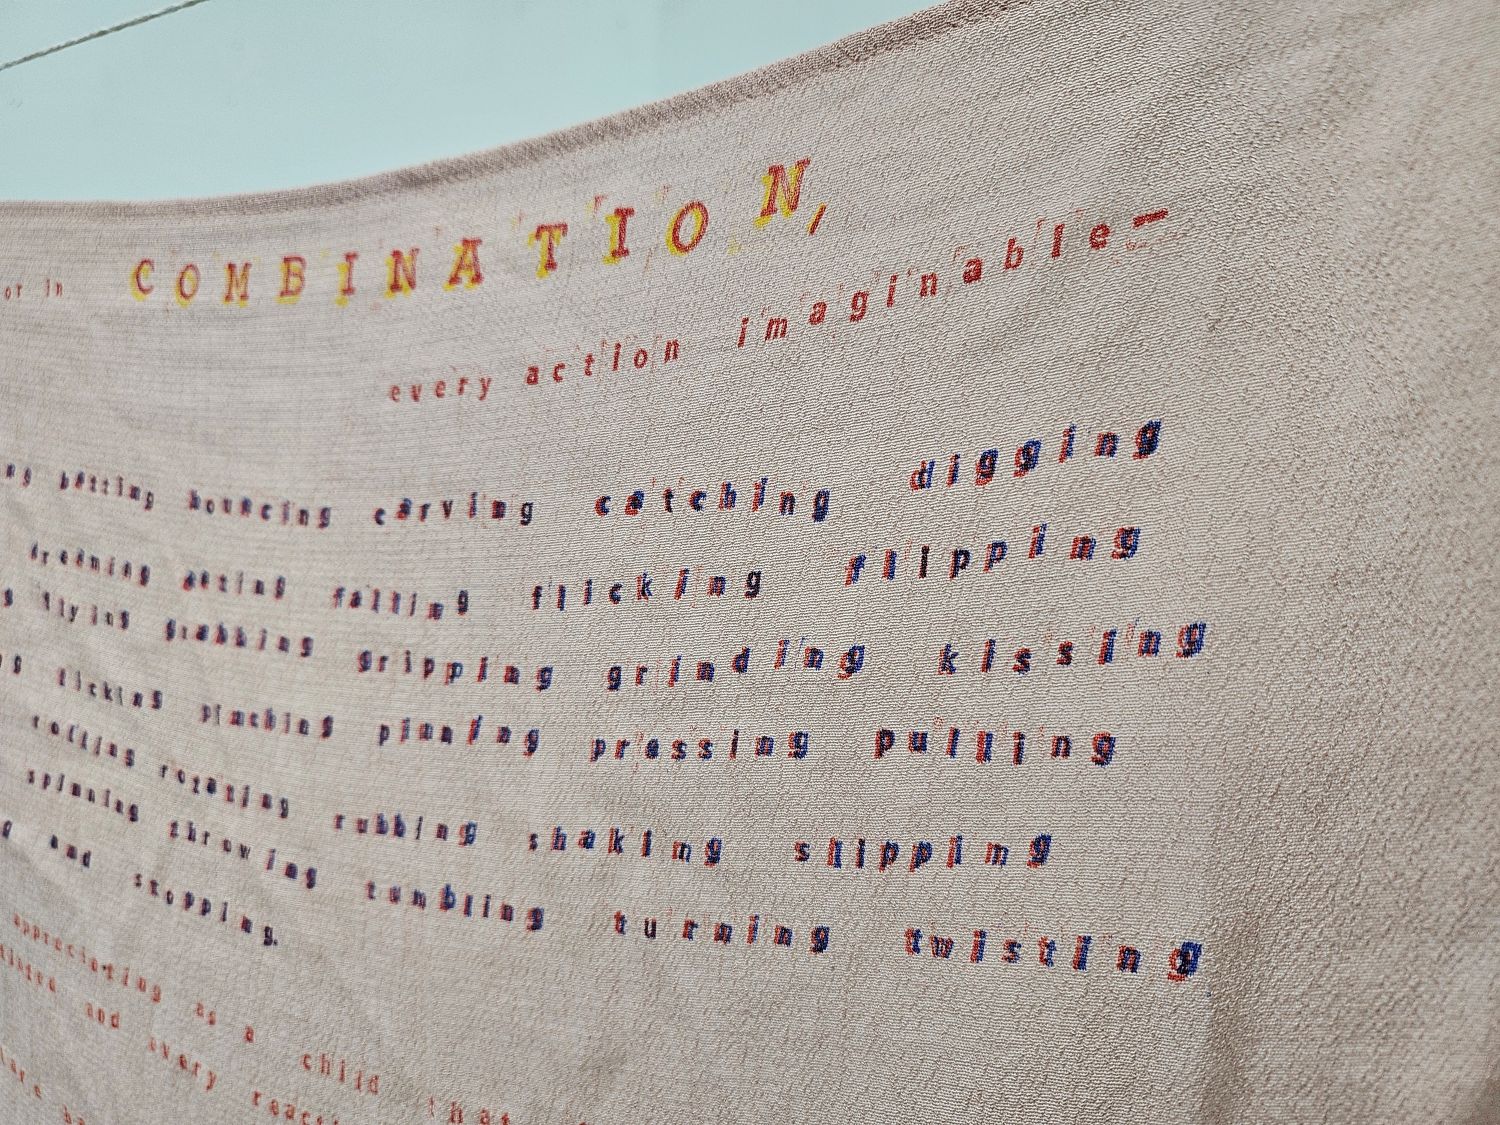 or in COMBINATION,
every action imaginable—
batting bouncing carving catching digging
dreaming eating falling flicking flipping
flying grabbing gripping grinding kissing
licking pinching pinning pressing pulling
rolling rotating rubbing shaking slipping
spinning throwing tumbling turning twisting
and stopping.
appreciating as a child that
and every